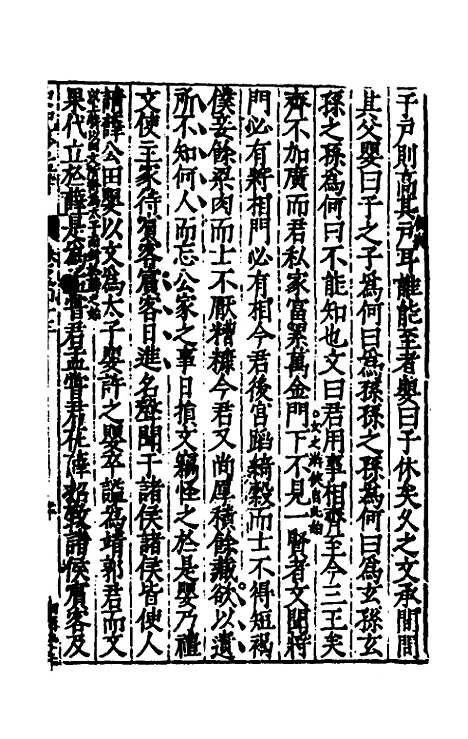 子戶則高其戶耳誰能至者嬰曰子休矣久之文承間問
其父嬰曰子之子為何曰為孫孫之孫為何曰為玄孫玄
孫之孫為何曰不能知也文曰君用事相齊至今三王矣
齊不加廣而君私家富累萬金門下不見一賢者文聞將
門必有將相門必有相今君後宮蹈綺縠而士不得短褐
僕妾餘粱肉而士不厭糟糠今君又尚厚積餘藏欲以遺
所不知何人而忘公家之事日損文竊怪之於是嬰乃禮
文使主家待賓客賓客日進名聲聞于諸侯諸侯皆使人
請薛公田嬰以文為太子嬰許之嬰卒謚為靖郭君而文
果代立於薛是為孟嘗君孟嘗君在薛招致諸侯賓客及